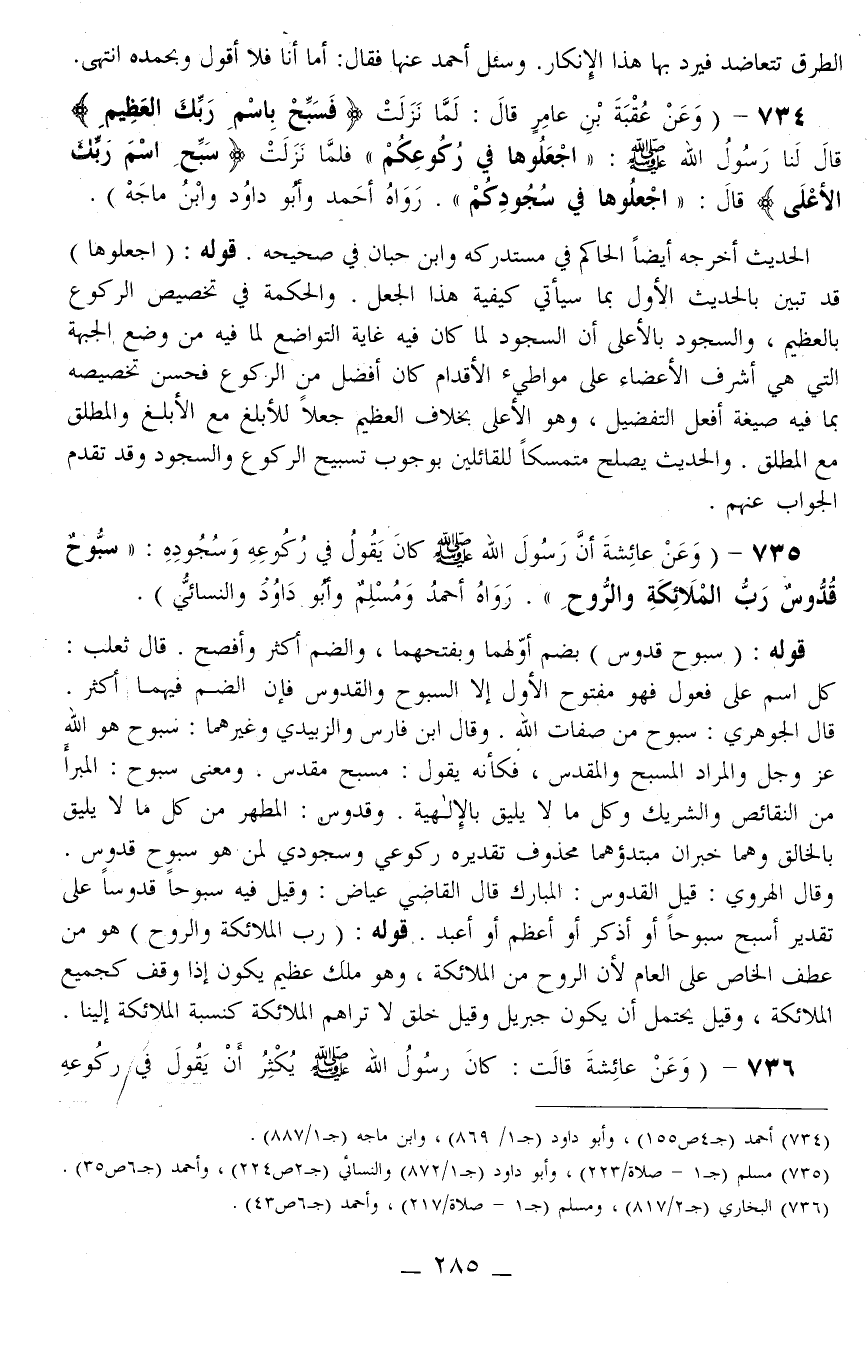 الطرق تتعاضد فيرد بها هذا الإنكار. وسئل أحمد عنها فقال: أما أنا فلا أقول وبحمده انتهى.
٧٣٤ - ( وَعَنْ عُقْبَةَ بْنِ عامِرٍ قالَ : لَمَّا نَزَلَتْ ﴿ فَسَبِّحْ بِاسْمِ رَبِّكَ العَظِيمِ ﴾
قالَ لَنا رَسُولُ الله ﷺ : « اجْعَلُوها في رُكُوعِكُمْ » فلمَّا نَزَلَتْ ﴿ سَبِّحِ اسْمَ رَبِّكَ
الأعْلَى ﴾ قالَ : « اجْعَلُوها في سُجُودِكُمْ » . رَوَاهُ أحْمَد وأبو داوُد وابْنُ ماجَهْ ) .
الحديث أخرجه أيضاً الحاكم في مستدركه وابن حبان في صحيحه . قوله : ( اجعلوها )
قد تبين بالحديث الأول بما سيأتي كيفية هذا الجعل . والحكمة في تخصيص الركوع
بالعظيم ، والسجود بالأعلى أن السجود لما كان فيه غاية التواضع لما فيه من وضع الجبهة
التي هي أشرف الأعضاء على مواطيء الأقدام كان أفضل من الركوع فحسن تخصيصه
بما فيه صيغة أفعل التفضيل ، وهو الأعلى بخلاف العظيم جعلاً للأبلغ مع الأبلغ والمطلق
مع المطلق . والحديث يصلح متمسكاً للقائلين بوجوب تسبيح الركوع والسجود وقد تقدم
الجواب عنهم .
٧٣٥ - ( وَعَنْ عائِشةَ أنَّ رَسُولَ الله ﷺ كانَ يَقُولُ في رُكُوعِهِ وَسُجُودِهِ : « سبُّوحٌ
قُدُّوسٌ رَبُّ المْلَائِكَةِ والرُّوحِ » . رَوَاهُ أحمدُ وَمُسْلِمٌ وأبُو دَاوُدَ والنسائيُّ ) .
قوله : ( سبوح قدوس ) بضم أوّلهما وبفتحهما ، والضم أكثر وأفصح . قال ثعلب :
كل اسم على فعول فهو مفتوح الأول إلا السبوح والقدوس فإن الضم فيهما أكثر .
قال الجوهري : سبوح من صفات الله . وقال ابن فارس والزبيدي وغيرهما : سبوح هو الله
عز وجل والمراد المسبح والمقدس ، فكأنه يقول : مسبح مقدس . ومعنى سبوح : المبرأ
من النقائص والشريك وكل ما لا يليق بالإلٰهية . وقدوس : المطهر من كل ما لا يليق
بالخالق وهما خبران مبتدؤهما محذوف تقديره ركوعي وسجودي لمن هو سبوح قدوس .
وقال الهروي : قيل القدوس : المبارك قال القاضي عياض : وقيل فيه سبوحاً قدوساً على
تقدير أسبح سبوحاً أو أذكر أو أعظم أو أعبد . قوله : ( رب الملائكة والروح ) هو من
عطف الخاص على العام لأن الروح من الملائكة ، وهو ملك عظيم يكون إذا وقف كجميع
الملائكة ، وقيل يحتمل أن يكون جبريل وقيل خلق لا تراهم الملائكة كنسبة الملائكة إلينا .
٧٣٦ - ( وَعَنْ عائِشةَ قالَت : كانَ رسولُ الله ﷺ يُكْثِرُ أَنْ يَقُولَ في ركُوعهِ
(٧٣٤) أحمد (جـ٤ص١٥٥) ، وأبو داود (جـ١/ ٨٦٩) ، وابن ماجه (جـ٨٨٧/١) .
(٧٣٥) مسلم (جـ١ - صلاة/٢٢٣) ، وأبو داود (جـ٨٧٢/١) والنسائي (جـ٢ص٢٢٤) ، وأحمد (جـ٦ص٣٥) .
(٧٣٦) البخاري (جـ٨١٧/٢) ، ومسلم (جـ١ - صلاة/٢١٧) ، وأحمد (جـ٦ص٤٣) .
_ ٢٨٥ _